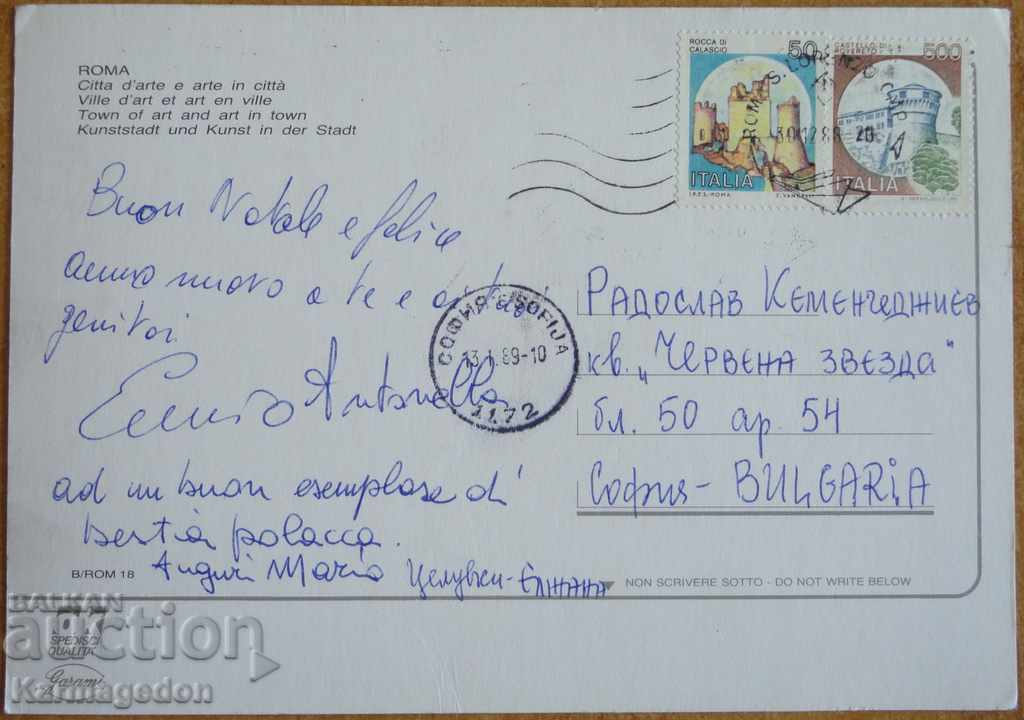 ROMA
Citta d'arte e arte in città
Ville d'art et art en ville
Town of art and art in town
Kunststadt und Kunst in der Stadt
ROCCA DI
CALASCIO
50
ITALIA
I.P.Z.S. ROMA
CASTELLO DI
ROVERETO
500
ITALIA
ROMA S. LORENZO
30 12 88 20
Buon Natale e felice
anno nuovo a te e ai tuoi
genitori
Antonella
СОФИЯ SOFIJA
13.1.89-10
1172
ad un buon esemplare di
bestia polacca.
Auguri Mario Целувки-
РАДОСЛАВ КЕМЕНЧЕДЖИЕВ
кв. „ЧЕРВЕНА ЗВЕЗДА“
бл. 50 ар. 54
София - BULGARIA
B/ROM 18
NON SCRIVERE SOTTO - DO NOT WRITE BELOW
SPEDISCI
QUALITA'
Garami
BALKAN
auction
Karmagedon